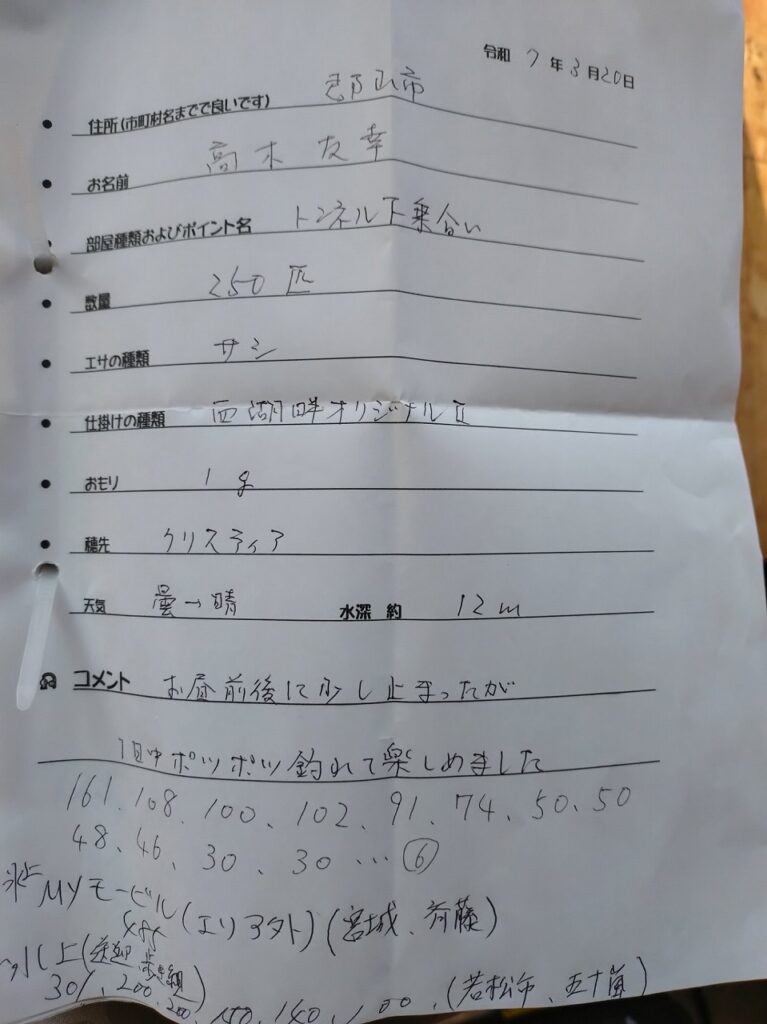 令和 7年3月20日
住所(市町村名までで良いです) 郡山市
お名前 高木 友幸
部屋種類およびポイント名 トンネル下乗合い
数量 250匹
エサの種類 サシ
仕掛けの種類 西湖畔オリジナルⅡ
おもり 1g
穂先 クリスティア
天気 曇→晴 水深 約 12m
コメント お昼前後に少し止まったが
1日中ポツポツ釣れて楽しめました
161、108、100、102、91、74、50、50
48、46、30、30…⑥
氷上MYモービル(エリア外)(宮城、斉藤)
ル上(送迎 歩き組)
301、200、200、150、140、100、(若松市、五十嵐)